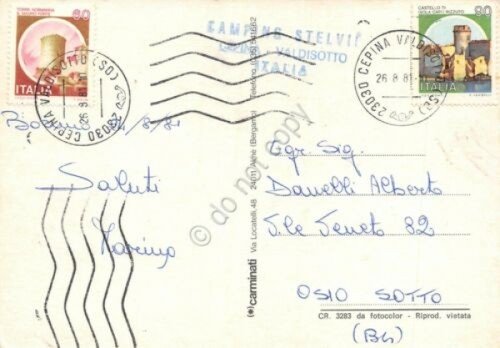 TORRE NORMANNA
S. MAURO FORTE
60
ITALIA
CASTELLO DI
ISOLA CAPO RIZZUTO
80
ITALIA
23030 CEPINA VALDISOTTO (SO)
26.8.81
23030 CEPINA VALDISOTTO (SO)
26.8.81
CAMPING STELVIO
CEPINA VALDISOTTO
ITALIA
/8/81
Saluti
Marino
Egr. Sig.
Danelli Alberto
V.le Veneto 82
OSIO SOTTO
(BG)
(•) carminati Via Locatelli, 48 24011 Almè (Bergamo)
CR. 3283 da fotocolor - Riprod. vietata
do not copy